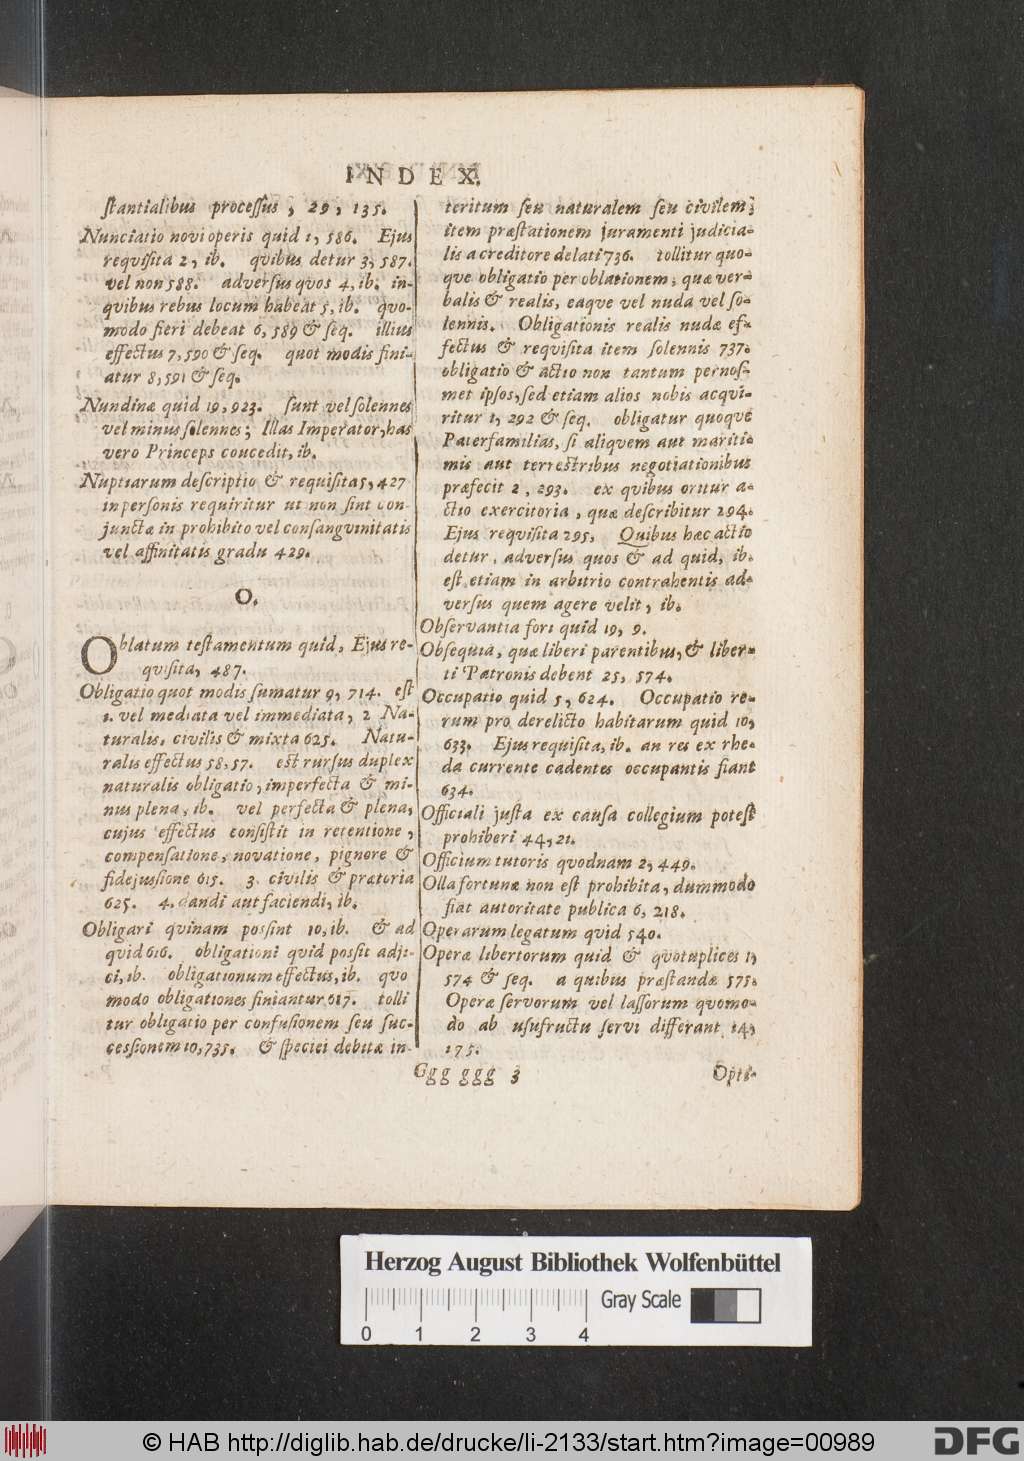 INDEX.
stantialibus processus, 29, 135.
Nunciatio novi operis quid 1, 586. Ejus
reqvisita 2, ib. qvibus detur 3, 587.
vel non 588. adversus qvos 4, ib. in-
qvibus rebus locum habeat 5, ib. qvo-
modo fieri debeat 6, 589 & seq. illius
effectus 7, 590 & seq. quot modis fini-
atur 8, 591 & seq.
Nundinæ quid 19, 923. sunt vel solennes
vel minus solennes; Illas Imperator, has
vero Princeps coucedit, ib.
Nuptiarum descriptio & requisita 5, 427
in personis requiritur ut non sint con-
junctæ in prohibito vel consangvinitatis
vel affinitatis gradu 429.
O.
Oblatum testamentum quid, Ejus re-
qvisita, 487.
Obligatio quot modis sumatur 9, 714. est
1. vel mediata vel immediata, 2 Na-
turalis, civilis & mixta 625. Natu-
ralis effectus 58, 57. est rursus duplex
naturalis obligatio, imperfecta & mi-
nus plena, ib. vel perfecta & plena,
cujus effectus consistit in retentione,
compensatione, novatione, pignore &
fidejussione 615. 3. civilis & prætoria
625. 4. dandi aut faciendi, ib.
Obligari qvinam possint 10, ib. & ad
quid 616. obligationi qvid possit adji-
ci, ib. obligationum effectus, ib. qvo
modo obligationes finiantur 617. tolli
tur obligatio per confusionem seu suc-
cessionem 10, 735. & speciei debitæ in-
teritum seu naturalem seu civilem;
item præstationem juramenti judicia-
lis a creditore delati 736. tollitur quo-
qve obligatio per oblationem, quæ ver-
balis & realis, eaqve vel nuda vel so-
lennis. Obligationis realis nudæ ef-
fectus & requisita item solennis 737.
obligatio & actio non tantum per nos-
met ipsos, sed etiam alios nobis acqvi-
ritur 1, 292 & seq. obligatur quoqve
Paterfamilias, si aliqvem aut mariti-
mis aut terrestribus negotiationibus
præfecit 2, 293. ex qvibus oritur a-
ctio exercitoria, quæ describitur 294.
Ejus reqvisita 295. Quibus hæc actio
detur, adversus quos & ad quid, ib.
est etiam in arbitrio contrahentis ad-
versus quem agere velit, ib.
Observantia fori quid 19, 9.
Obsequia, quæ liberi parentibus, & liber-
ti Patronis debent 25, 574.
Occupatio quid 5, 624. Occupatio re-
rum pro derelicto habitarum quid 10,
633. Ejus requisita, ib. an res ex rhe-
da currente cadentes occupantis fiant
634.
Officiali justa ex causa collegium potest
prohiberi 44, 21.
Officium tutoris qvodnam 2, 449.
Olla fortunæ non est prohibita, dummodo
fiat autoritate publica 6, 218.
Operarum legatum qvid 540.
Operæ libertorum quid & qvotuplices 1,
574 & seq. a quibus præstandæ 575.
Operæ servorum vel lassorum qvomo-
do ab usufructu servi differant 14,
175.
Ggg ggg 3
Opti-
Herzog August Bibliothek Wolfenbüttel
Gray Scale
0 1 2 3 4
© HAB http://diglib.hab.de/drucke/li-2133/start.htm?image=00989
DFG